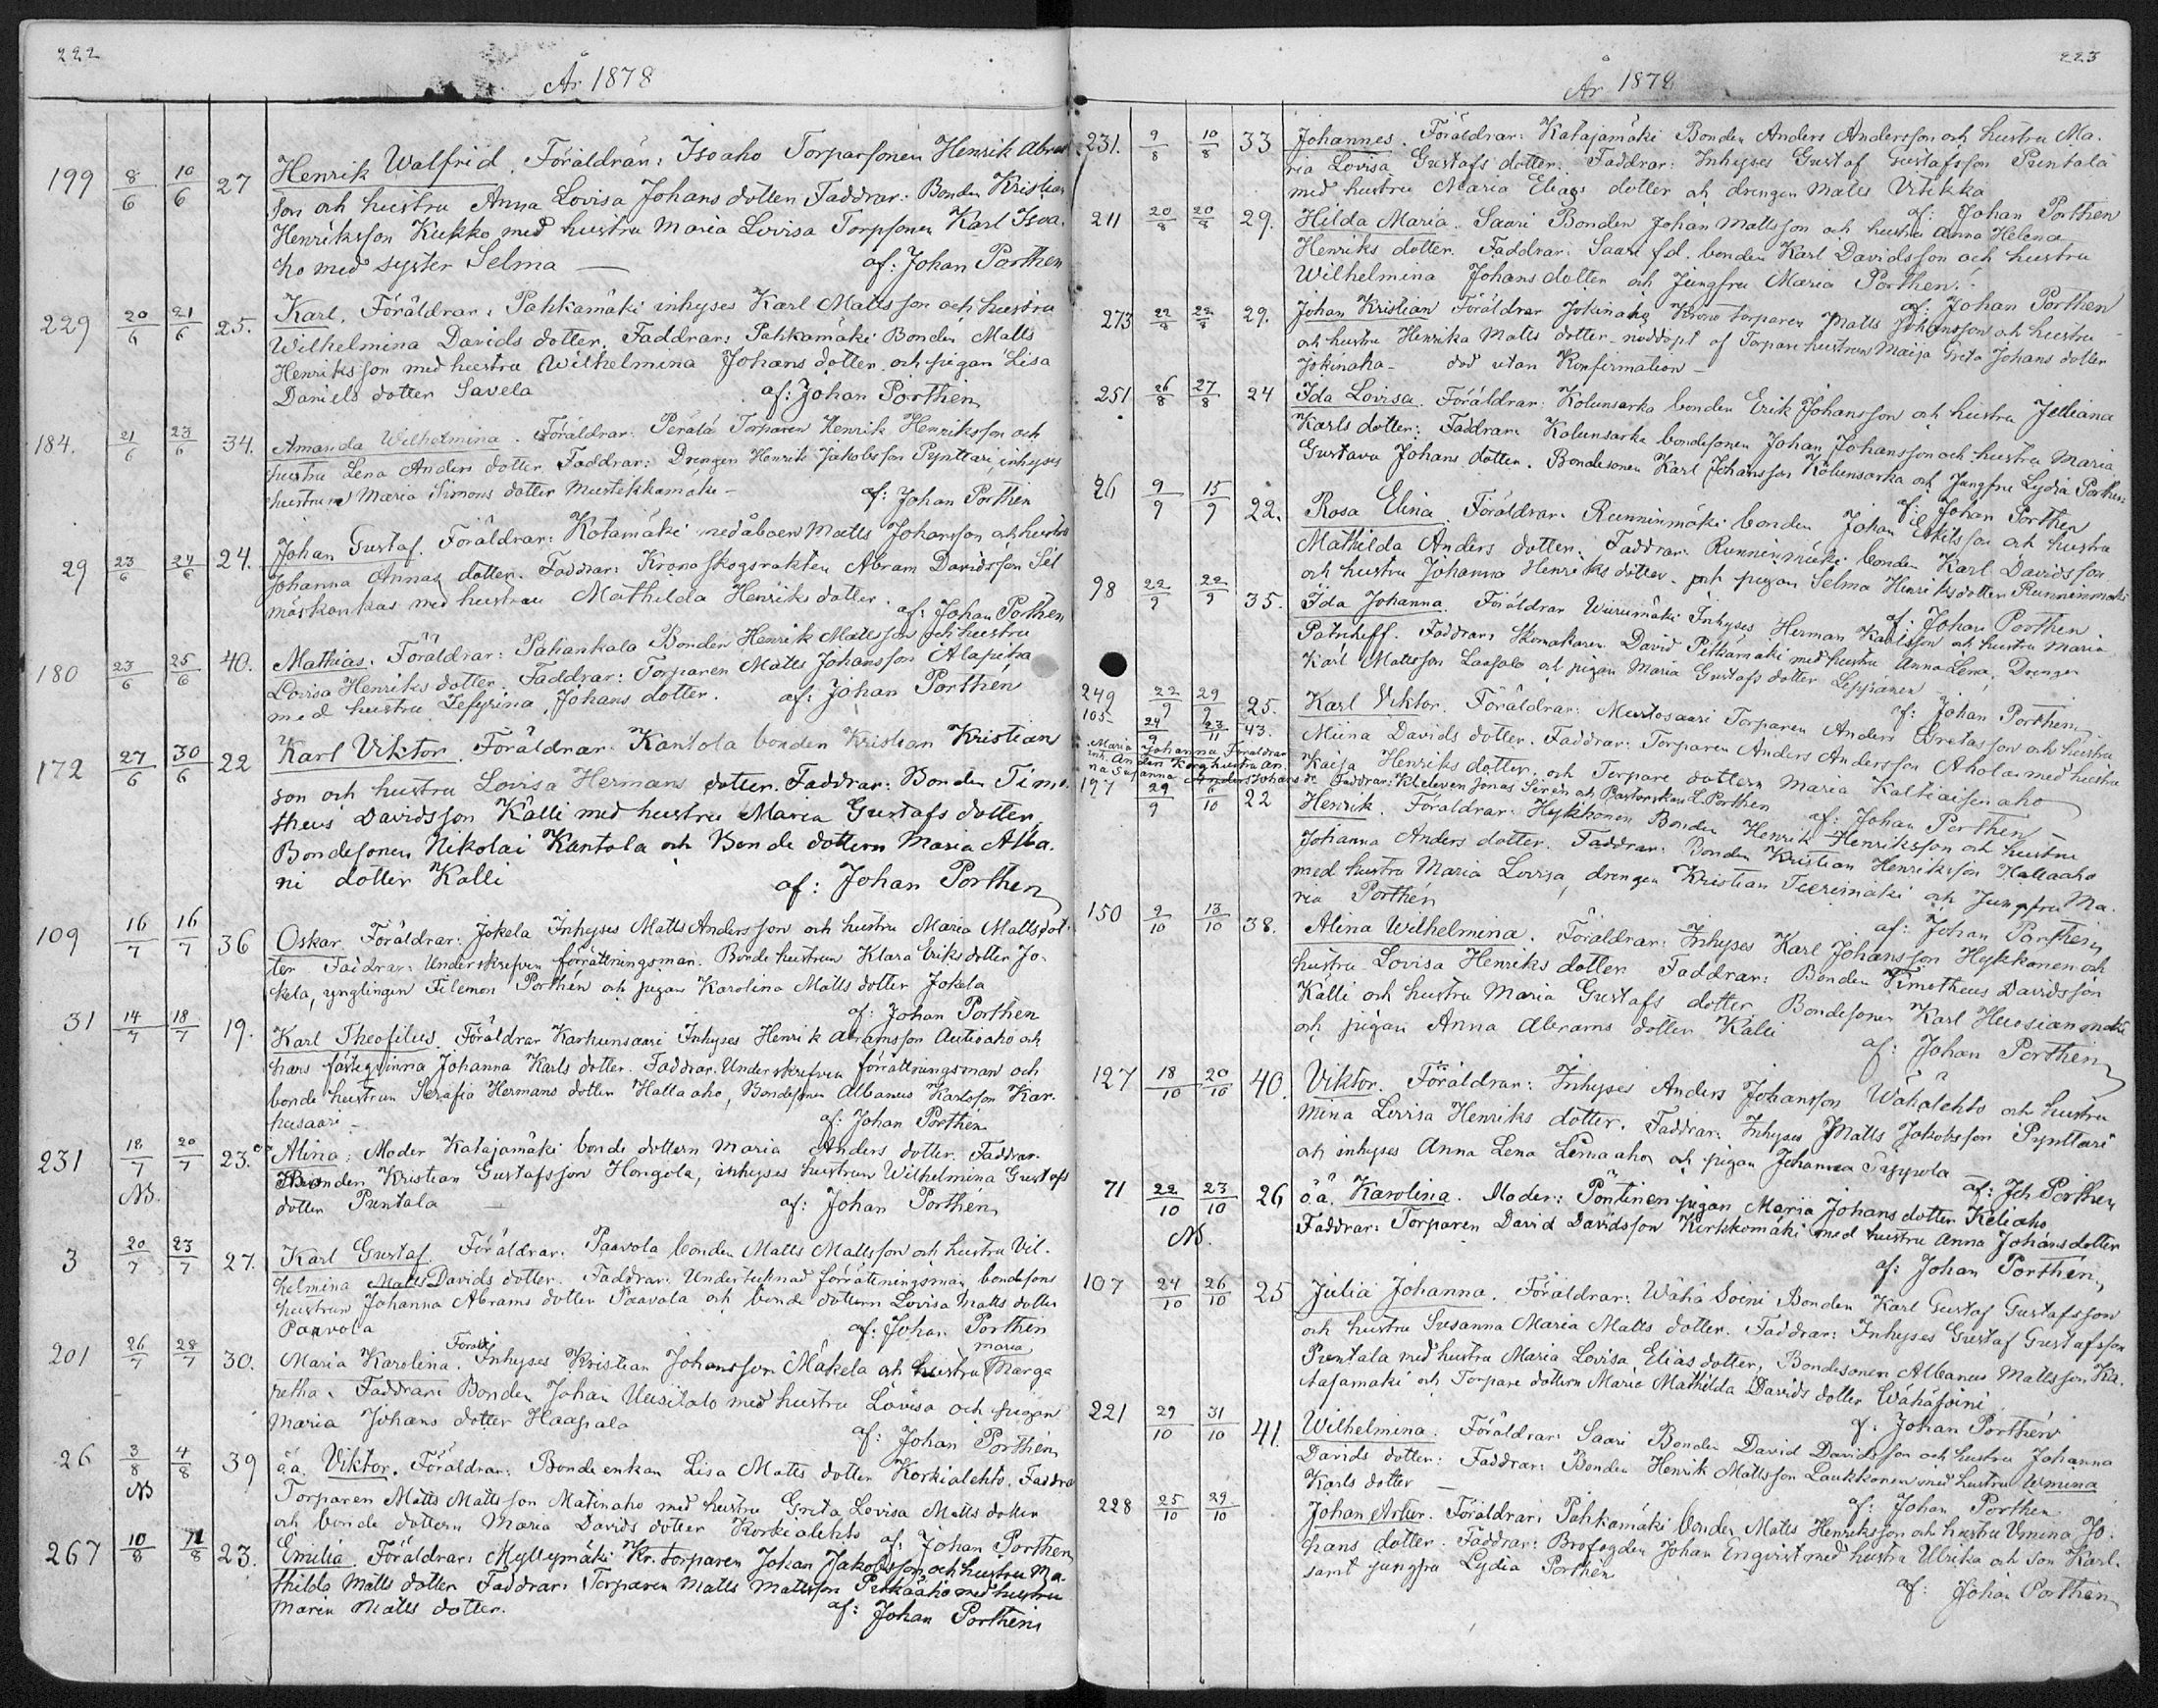 222
År 1878
199 8/6 10/6 27 Henrik Walfrid. Föräldrar: Isoaho Torparsonen Henrik Abra
son och hustru Anna Lovisa Johans dotter Faddrar: Bonden Kristian
Henriksson Kukko med hustru Maria Lovisa Torpsonen Karl Isoa.
ho med syster Selma — af: Johan Porthen
229 20/6 21/6 25. Karl. Föräldrar: Pahkamäki inhyses Karl Mattsson och hustru
Wilhelmina Davids dotter. Faddrar: Pahkamäki Bonden Matts
Henriksson med hustru Wilhelmina Johans dotter och pigan Lisa
Daniels dotter Savela af: Johan Porthen
184. 21/6 23/6 34. Amanda Wilhelmina. Föräldrar: Perälä Torparen Henrik Henriksson och
hustru Lena Anders dotter. Faddrar: Drengen Henrik Jakobsson Pynttari, inhyses
hustrun Maria Simons dotter Mustikkamäki – af: Johan Porthen
29 23/6 24/6 24. Johan Gustaf. Föräldrar: Kotamäki nedåboen Matts Johansson och hustru
Johanna Annas dotter. Faddrar: Krono skogsvakten Abram Davidsson Sil
mäskankas med hustru Mathilda Henriks dotter. af: Johan Porthen
180 23/6 25/6 40. Mathias. Föräldrar: Pahankala Bonden Henrik Mattsson och hustru
Lovisa Henriks dotter. Faddrar: Torparen Matts Johansson Alapiha
med hustru Sefyrina Johans dotter. af: Johan Porthen
172 27/6 30/6 22 Karl Viktor. Föräldrar: Kantola bonden Kristian Kristians
son och hustru Lovisa Hermans dotter. Faddrar: Bonden Timo.
theus Davidsson Källi med hustru Maria Gustafs dotter,
Bondesonen Nikolai Kantola och Bonde dottern Maria Alba.
ni dotter Kalli af: Johan Porthen
109 16/7 16/7 36 Oskar. Föräldrar: Jokela Inhyses Matts Andersson och hustru Maria Mattsdot.
ter Faddrar: Underskrefven förrättningsman. Bonde hustrun Klara Eriksdotter Jo.
kela, ynglingen Filemon Porthén och pigan Karolina Matts dotter Jokela
af: Johan Porthen
31 14/7 18/7 19. Karl Theofilus. Föräldrar Karhunsaari Inhyses Henrik Abramsson Autioaho och
hans fästeqvinna Johanna Karls dotter. Faddrar. Underskrefven förrättningsman och
bonde hustrun Serafia Hermans dotter Hallaaho, Bondesonen Albanus Karlsson Kar.
husaari – af: Johan Porthén
231 18/7 20/7 23. Alina: Moder Katajamäki bonde dottern Maria Anders dotter. Faddrar.
NB. Bonden Kristian Gustafsson Hongola, inhyses hustrun Wilhelmina Gustafs
dotter Puntala — af: Johan Porthén
3 20/7 23/7 27. Karl Gustaf. Föräldrar: Paavola bonden Matts Mattsson och hustru Vil.
helmina Matts Davids dotter. Faddrar: Undertecknad förrättningsman, bondesons
hustrun Johanna Abrams dotter Paavola och bonde dottern Lovisa Matts dotter
Paavola af: Johan Porthen
201 26/7 28/7 30. Maria Karolina. Föräldr: Inhyses Kristian Johansson Mäkela och hustru Maria Marga
retha. Faddrar: Bonden Johan Uusitalo med hustru Lovisa och pigan
Maria Johans dotter Haapala af: Johan Porthén
26 3/8 4/8 39 o.ä. Viktor. Föräldrar: Bonde enkan Lisa Matts dotter Korkialehto. Faddra
NB Torparen Matts Mattsson Matinaho med hustru Greta Lovisa Matts dotter
och bonde dottern Maria Davids dotter Korkialehto af: Johan Porthen
267 10/8 11/8 23. Emilia. Föräldrar: Myllymäki Kr. torparen Johan Jakobsson och hustru Ma.
thilda Matts dotter Faddrar: Torparen Matts Mattsson Pitkaaho med hustru
Maria Matts dotter. af: Johan Porthen
223
År 1878
231. 9/8 10/8 33 Johannes. Föräldrar: Katajamäki Bonden Anders Andersson och hustru Ma.
ria Lovisa Gustafs dotter. Faddrar: Inhyses Gustaf Gustafsson Puntala
med hustru Maria Elias dotter och drengen Matts Vitikka
af: Johan Porthen
211 20/8 20/8 29. Hilda Maria. Saari Bonden Johan Mattsson och hustru Anna Helena
Henriks dotter. Faddrar: Saari f.d. bonden Karl Davidsson och hustru
Wilhelmina Johans dotter och Jungfru Maria Porthen.
af: Johan Porthen
273 22/8 22/8 29. Johan Kristian Föräldrar Jokinaho Krono torparen Matts Johansson och hustru
och hustru Henrika Matts dotter – nöddöpt af Torpare hustrun Maija Greta Johans dotter
Jokinaho – död utan Konfirmation –
251 26/8 27/8 24 Ida Lovisa. Föräldrar: Kolunsarka bonden Erik Johansson och hustru Juliana
Karls dotter: Faddrar: Kolunsarka bondesonen Johan Johansson och hustru Maria
Gustava Johans dotter. Bondesonen Karl Johansson Kolunsarka och Jungfru Lydia Porthen
af: Johan Porthen
26 9/9 15/9 22. Rosa Elina. Föräldrar: Runninmäki bonden Johan Eskilsson och hustru
Mathilda Anders dotter. Faddrar: Runninmäki bonden Karl Davidsson
och hustru Johanna Henriks dotter – och pigan Selma Henriksdotter Runninmäki
af: Johan Porthen.
98 22/9 22/9 35. Ida Johanna. Föräldrar Wiirumäki Inhyses Herman Karlsson och hustru Maria
Patscheff. Faddrar: Skomakaren David Pitkämäki med hustru Anna Lena, Drengen
Karl Mattsson Laasala och pigan Maria Gustafs dotter Leppänen
af: Johan Porthen,
249 22/9 29/9 25. Karl Viktor. Föräldrar: Mustosaari Torparen Anders Gretasson och hustru
Miina Davids dotter. Faddrar: Torparen Anders Andersson Ahola med hustru
Kaisa Henriks dotter och Torpare dottern Maria Kaltiaisenaho
af: Johan Porthen –
105 24/9 23/11 43. Maria Johanna Föräldrar
177 29/9 6/10 22 Henrik. Föräldrar: Hykkönen Bonden Henrik Henriksson och hustru
Johanna Anders dotter. Faddrar: Bonden Kristian Henriksson Hallaaho
med hustru Maria Lovisa, drengen Kristian Teerimäki och Jungfru Ma.
ria Porthén af: Johan Porthen,
150 9/10 13/10 38. Alina Wilhelmina. Föräldrar: Inhyses Karl Johansson Hykkönen och
hustru Lovisa Henriks dotter. Faddrar: Bonden Timotheus Davidsson
Källi och hustru Maria Gustafs dotter, Bondesonen Karl Huosianmäki
och pigan Anna Abrams dotter Källi
af: Johan Porthen
127 18/10 20/10 40. Viktor. Föräldrar: Inhyses Anders Johansson Wähälehto och hustru
Mina Lovisa Henriks dotter. Faddrar: Inhyses Matts Jakobsson Pynttäri
och inhyses Anna Lena Lemaaho och pigan Johanna Syppola
af: Joh Porthen
71 22/10 23/10 26 o.ä. Karolina. Moder: Pöntinen pigan Maria Johans dotter Keliaho
NB. Faddrar: Torparen David Davidsson Kirkkomäki med hustru Anna Johansdotter
af: Johan Porthén,
107 24/10 26/10 25 Julia Johanna. Föräldrar: Wähä Soini Bonden Karl Gustaf Gustafsson
och hustru Susanna Maria Matts dotter. Faddrar: Inhyses Gustaf Gustafsson
Puntala med hustru Maria Lovisa Elias dotter, Bondesonen Albanus Mattsson Ka.
tajamäki och Torpare dottern Maria Mathilda Davids dotter Wähäsoini
af: Johan Porthén
221 29/10 31/10 41. Wilhelmina. Föräldrar: Saari Bonden David Davidsson och hustru Johanna
Davids dotter: Faddrar: Bonden Henrik Mattsson Laukkonen med hustru Wmina
Karls dotter — af: Johan Porthen
228 25/10 29/10 Johan Artur. Föräldrar: Pahkamäki bonden Matts Henriksson och hustru Vmina Jo.
hans dotter. Faddrar: Brofogden Johan Enqvist med hustru Ulrika och son Karl.
samt jungfru Lydia Porthen
af: Johan Porthen